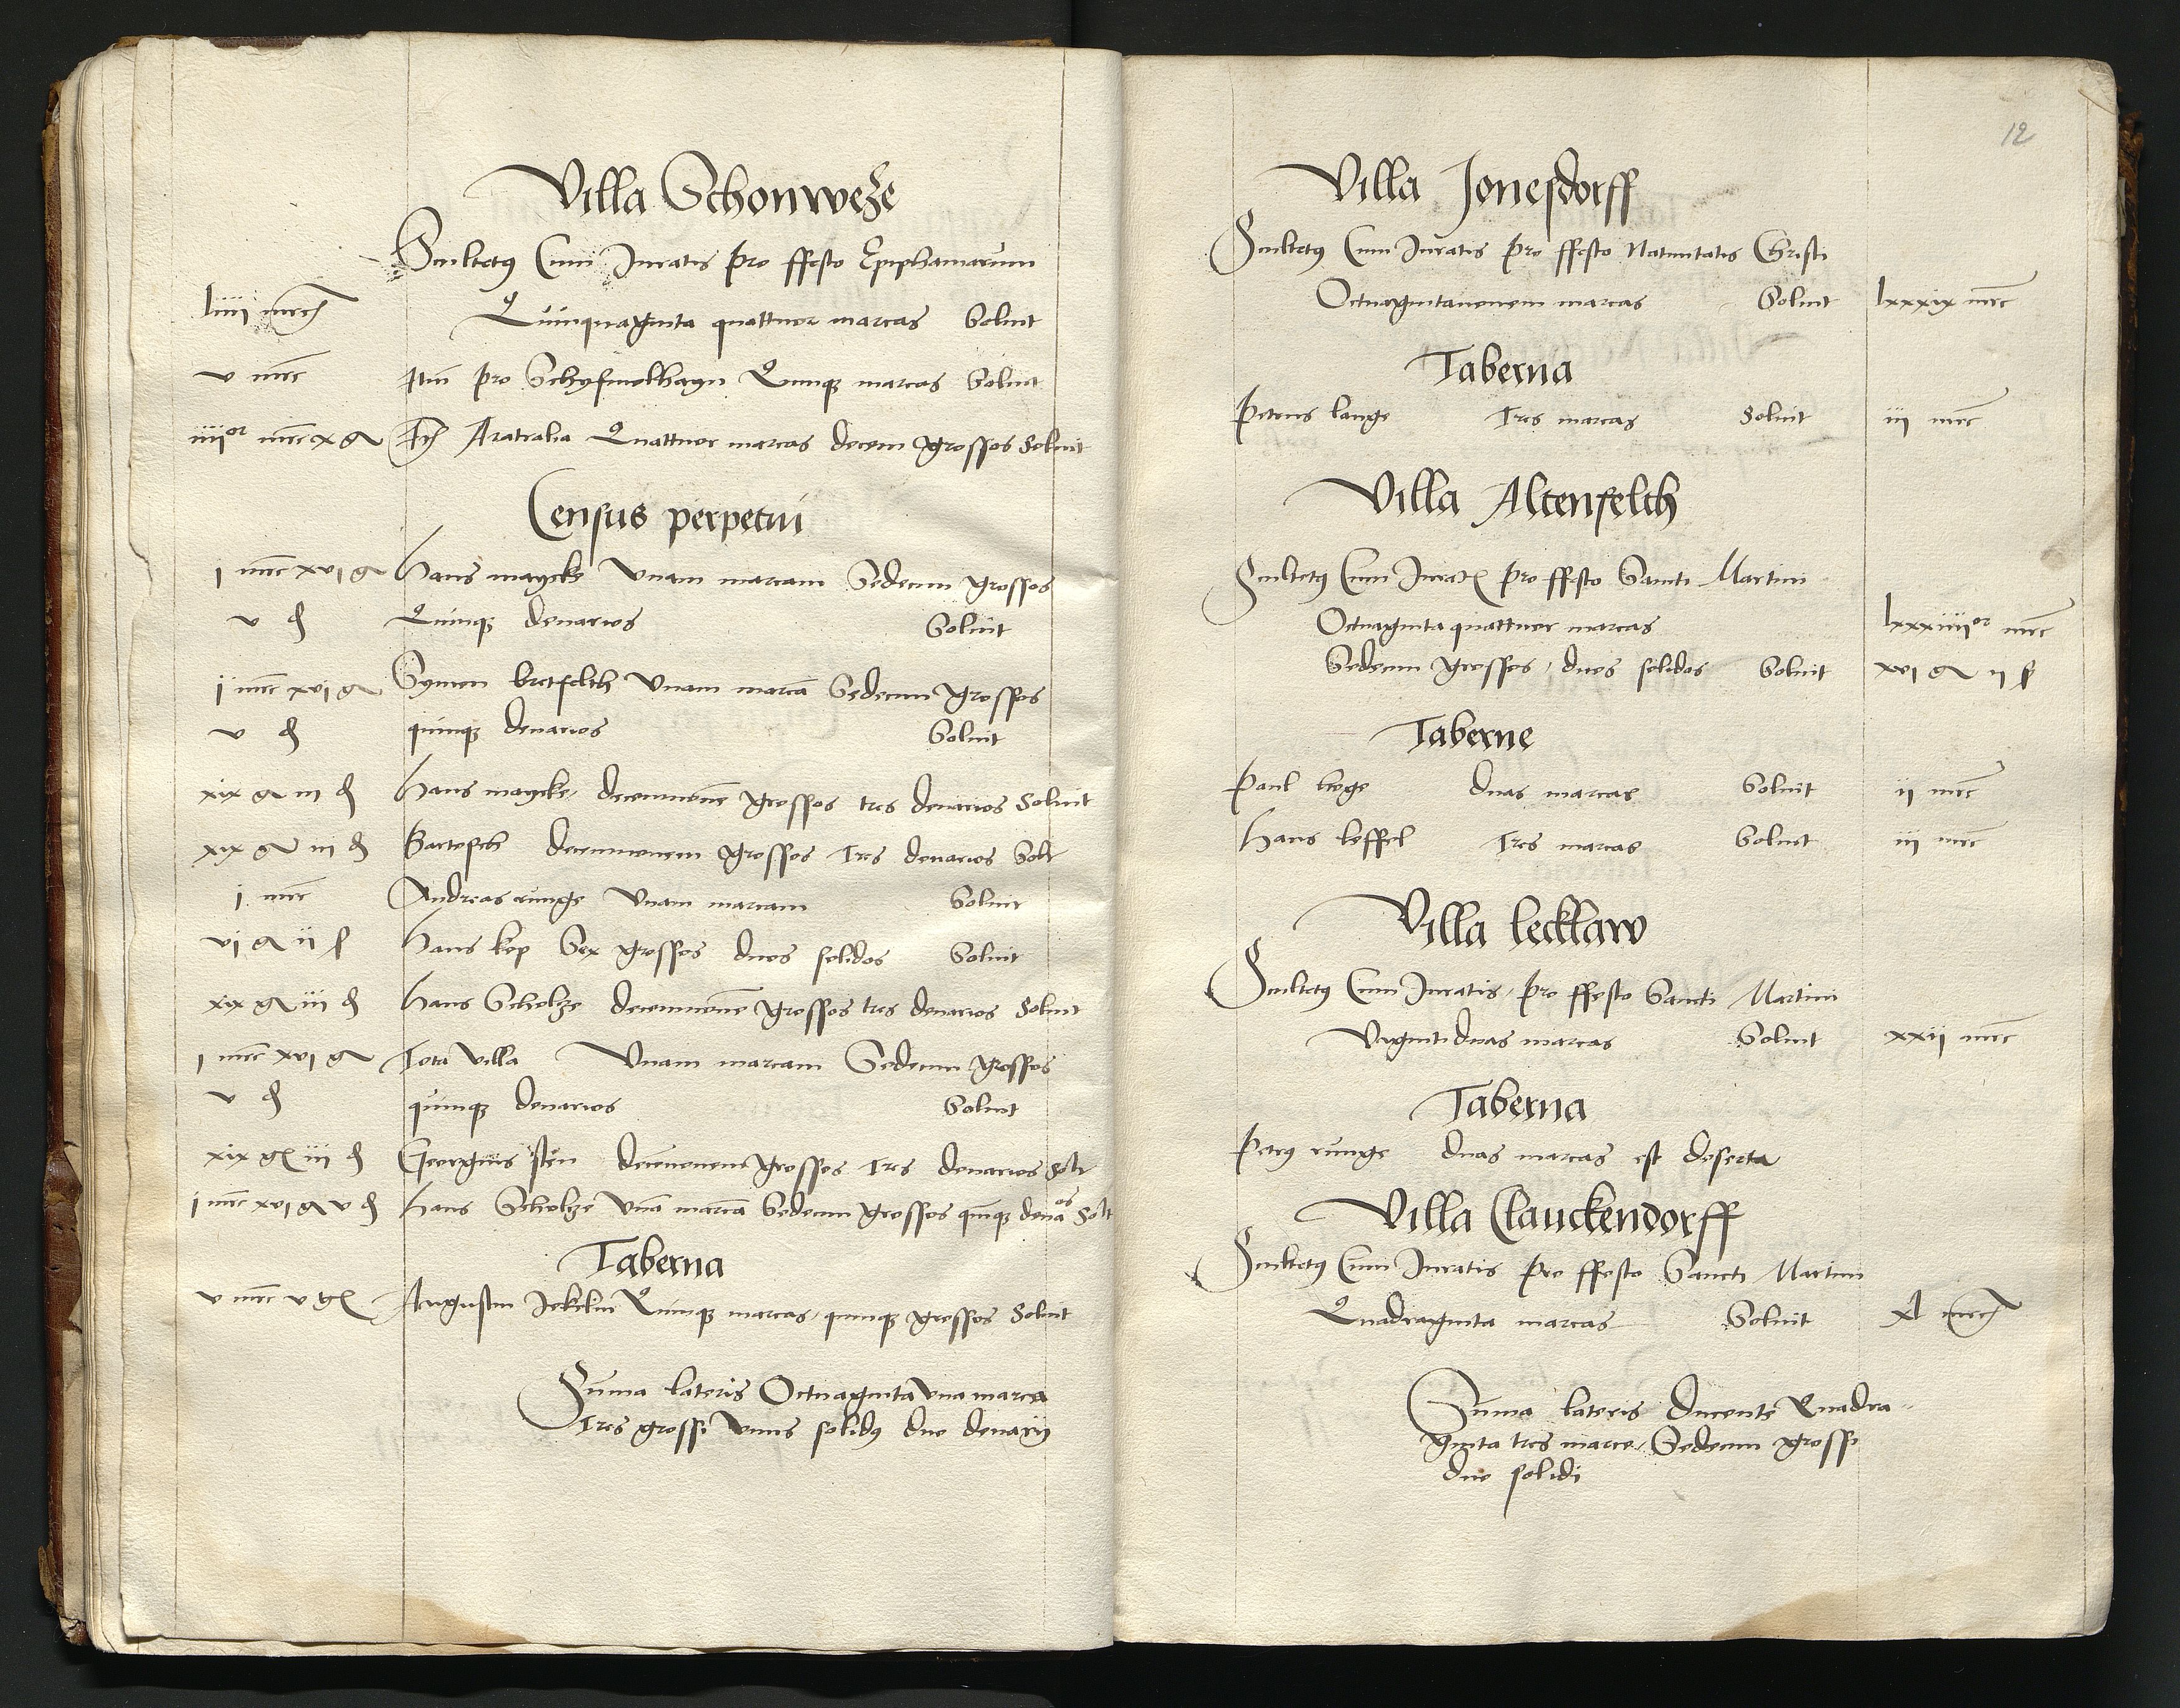 Villa Schonweße
Scultetꝰ Cum Juratis pro ffesto Epiphaniarum
liiii mrc Quinquaginta quattuor marcas Soluit
v mrc Itm pro Schyfmolhagn Quinqꝫ marcas Soluit
iiiior mrc x g Aratralia Quattuor marcas decem grossos Soluit
Census perpetui
i mrc xvi g Hans maycke Vnam marcam Sedecim grossos
v d Quinqꝫ denarios Soluit
i mrc xvi g Symon bretfelth Vnam marcā Sedecim grossos
v d quinqꝫ denarios Soluit
xix g iii d Hans maycke decemnouē grossos tres denarios Soluit
xix g iii d Bartosch decemnouem grossos Tres denarios Solt
i mrc Andreas runge Vnam marcam Soluit
vi g ii ß Hans kop Sex grossos duos solidos Soluit
xix g iii d Hans Scholze decemnouē grossos tres denarios Soluit
i mrc xvi g Tota Villa Vnam marcam Sedecim grossos
v d quinqꝫ denarios Soluit
xix g iii d Georgius sten decemnouem grossos Tres denarios Solt
i mrc xvi g v d Hans Scholze Vnā marcā Sedecim grossos quīqꝫ denaos Solt
Taberna
v mrc v g Augustin Jekelin Quinqꝫ marcas quinqꝫ grossos Soluit
Suma lateris Octuaginta Vna marca
Tres grossi Vnus solidꝰ duo denarij
12
Villa Jonesdorff
Scultetꝰ Cum Juratis pro ffesto Natiuitatis Christi
Octuagintanouem marcas Soluit lxxxix mrc
Taberna
Petrus lange Tres marcas Soluit iii mrc
Villa Altenfelth
Scultetꝰ Cum Jurat pro ffesto Sancti Martini
Octuaginta quattuor marcas lxxxiiiior mrc
Sedecim grossos duos solidos Soluit xvi g ii ß
Taberne
Paul hoge duas marcas Soluit ii mrc
Hans leffel Tres marcas Soluit iii mrc
Villa lecklaw
Scultetꝰ Cum Juratis pro ffesto Sancti Martini
Viginti duas marcas Soluit xxii mrc
Taberna
Petrꝰ runge duas marcas est deserta
Villa Clauckendorff
Scultetꝰ Cum Juratis pro ffesto Sancti Martini
Quadraginta marcas Soluit xl mrc
Suma lateris ducente Quadra-
ginta tres marce Sedecim grossi
duo solidi